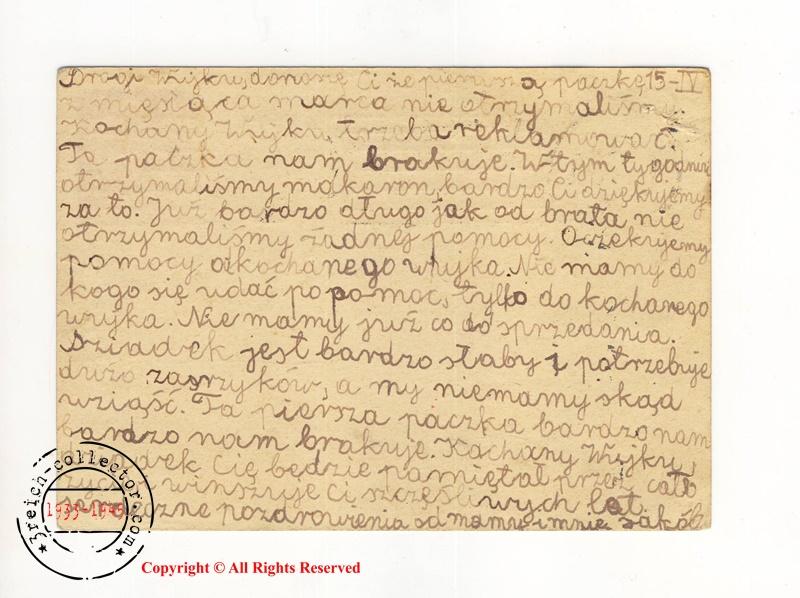 Drogi Wujku, donoszę Ci że pierwszą paczkę 15-IV
z miesiąca marca nie otrzymaliśmy.
Kochany Wujku, trzeba reklamować.
Ta paczka nam brakuje. W tym tygodniu
otrzymaliśmy makaron, bardzo Ci dziękujemy
za to. Już bardzo długo jak od brata nie
otrzymaliśmy żadnej pomocy. Oczekujemy
pomocy od kochanego wujka. Nie mamy do
kogo się udać po pomoc, tylko do kochanego
wujka. Nie mamy już co do sprzedania.
Dziadek jest bardzo słaby i potrzebuje
dużo zastrzyków, a my niemamy skąd
wziąść. Ta piersza paczka bardzo nam
bardzo nam brakuje. Kochany Wujku,
Cię będzie pamiętał przez całe
winszuje Ci szczęśliwych lat.
pozdrowienia od mamy i mnie Jakób
3reich-collector.com
1933-1945
Copyright © All Rights Reserved